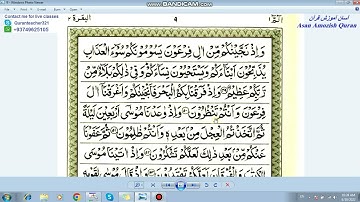 9 - Windows Photo Viewer
BANDICAM.COM
Contact me for live classes
Quranteacher321
+93749625105
آسان آموزش قرآن
Asan Amozish Quran
البقرة
4
وَاِذْ نَجَّيْنٰكُمْ مِّنْ اٰلِ فِرْعَوْنَ يَسُوْمُوْنَكُمْ سُوْٓءَ الْعَذَابِ
يُذَبِّحُوْنَ اَبْنَآءَكُمْ وَيَسْتَحْيُوْنَ نِسَآءَكُمْ وَفِيْ ذٰلِكُمْ بَلَآءٌ مِّنْ
رَّبِّكُمْ عَظِيْمٌ وَاِذْ فَرَقْنَا بِكُمُ الْبَحْرَ فَاَنْجَيْنٰكُمْ وَاَغْرَقْنَآ اٰلَ
فِرْعَوْنَ وَاَنْتُمْ تَنْظُرُوْنَ وَاِذْ وٰعَدْنَا مُوْسٰٓى اَرْبَعِيْنَ لَيْلَةً
ثُمَّ اتَّخَذْتُمُ الْعِجْلَ مِنْ بَعْدِهٖ وَاَنْتُمْ ظٰلِمُوْنَ ثُمَّ عَفَوْنَا
عَنْكُمْ مِّنْ بَعْدِ ذٰلِكَ لَعَلَّكُمْ تَشْكُرُوْنَ وَاِذْ اٰتَيْنَا مُوْسَى